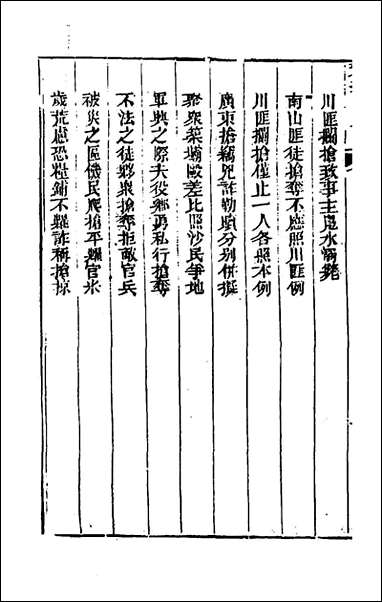 川匪攔搶致事主鳧水溺斃
南山匪徒搶奪不應照川匪例
川匪攔搶僅止一人各照本例
廣東搶竊兇詐勒贖分別併擬
聚衆築壩毆差比照沙民爭地
軍興之際夫役鄉勇私行搶奪
不法之徒夥衆搶奪拒敵官兵
被災之區饑民爬搶平糶官米
歲荒慮恐糧鋪不糶詐稱搶掠